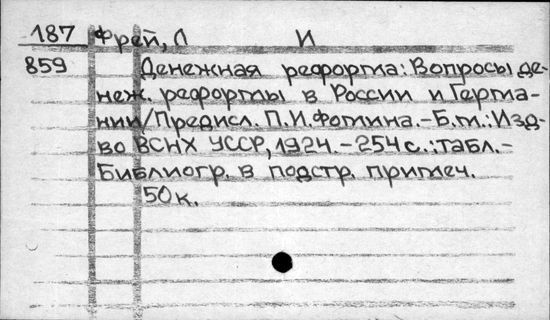 187 Фрей, Л И
859 Денежная реформа: Вопросы де-
неж. реформы в России и Герма-
нии/Предисл. П.И.Фомина.-Б.м.: Изд-
во ВСНХ УССР, 1924. -254 с.: табл.-
Библиогр. в подстр. примеч.
50к.